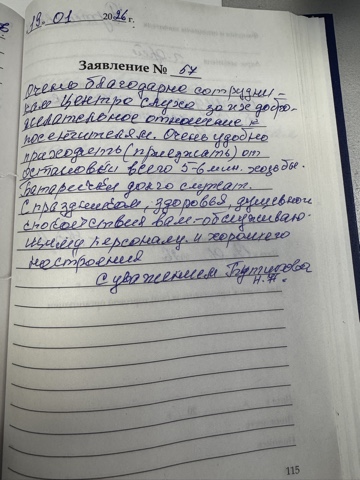 19.01 2026 г.
Заявление № 67
Очень благодарна сотрудни-
кам Центра слуха за их добро-
желательное отношение к
посетителям. Очень удобно
приходить (приезжать) от
остановки всего 5-6 мин. ходьбы.
Батарейки долго служат.
С праздником, здоровья, душевного
спокойствия вам - обслуживаю-
щему персоналу и хорошего
настроения
С уважением
Н.А.
115